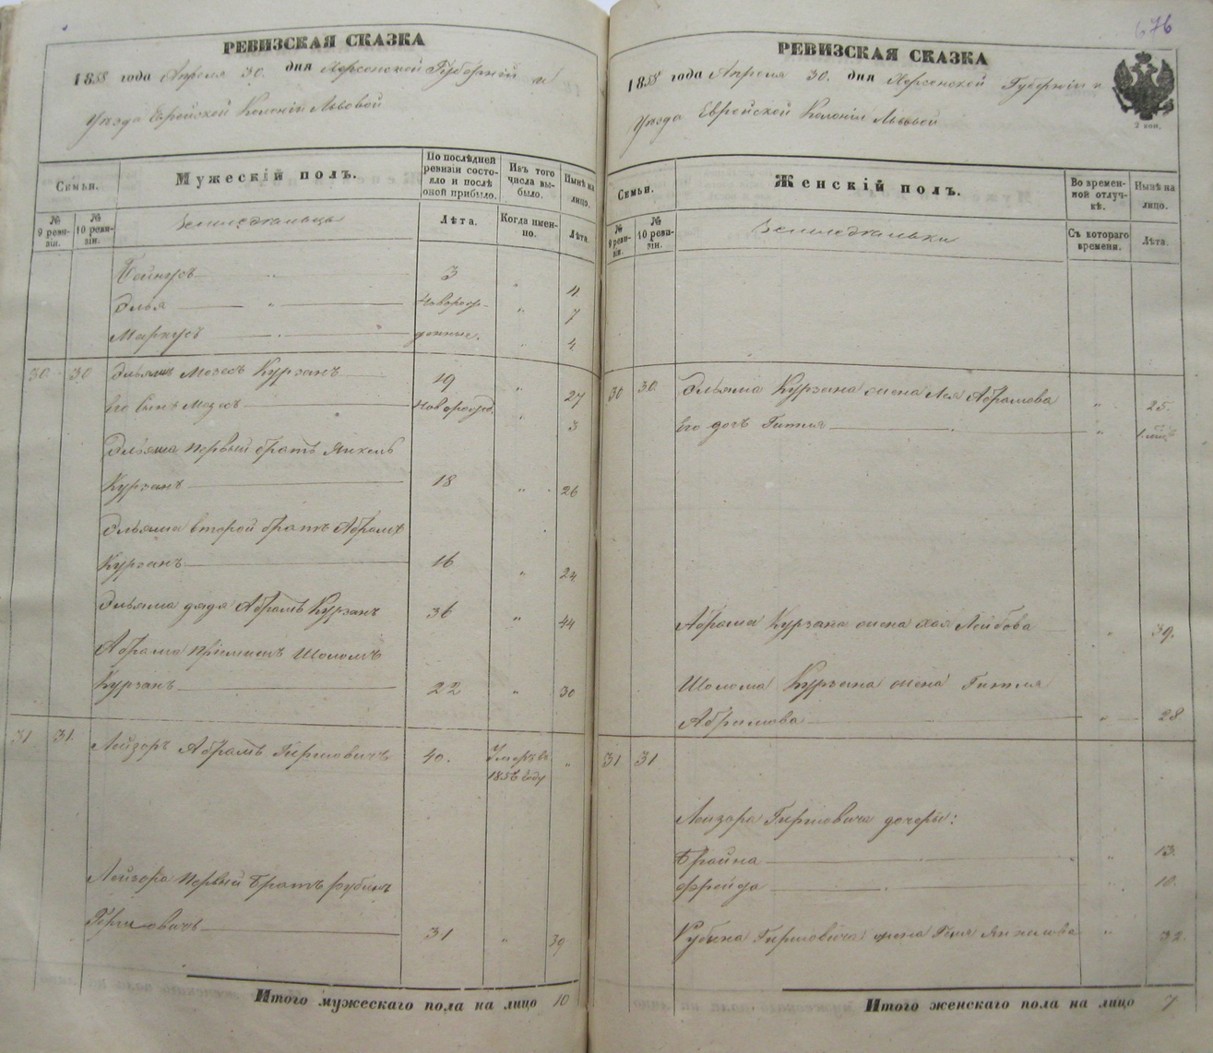 РЕВИЗСКАЯ СКАЗКА
1858 года Апреля 30. дня Херсонской Губерніи и
Уезда Еврейской Колоніи Львовой
Семьи.
№ 9 реви-
зіи.
№ 10 реви-
зіи.
Мужескій полъ.
По послѣдней
ревизіи состо-
яло и послѣ
оной прибыло.
Изъ того
числа вы-
было.
Нынѣ на
лицо.
Лѣта.
Когда имен-
но.
Лѣта.
3 " 4
Элья Новорож- " 7
Маркусъ денные. 4
30 30 Эльяшъ Курзанъ 19 " 27
его сынъ Новорожд. " 3
Эльяша первый братъ Янкель
Курзанъ 18 " 26
Эльяша второй братъ Абрамъ
Курзанъ 16 " 24
Эльяша дядя Абрамъ Курзанъ 36 " 44
Абрама Шоломъ
Курзанъ 22 " 30
31 31 Лейзоръ Абрамъ Гиршовичъ 40. Умеръ въ
1856 году "
Лейзора первый братъ Рубинъ
Гиршовичъ 31 " 39
Итого мужескаго пола на лицо 10
676
РЕВИЗСКАЯ СКАЗКА
1858 года Апреля 30. дня Херсонской Губерніи и
Уезда Еврейской Колоніи Львовой
2 коп.
Семьи.
№ 9 реви-
зіи.
№ 10 реви-
зіи.
Женскій полъ.
Во времен-
ной отлуч-
кѣ.
Нынѣ на
лицо.
Съ котораго
времени.
Лѣта.
30 30. Эльяша Курзана жена Лея Абрамова " 25.
Его дочь Гитля "
Абрама Курзана жена Хая Лейбова " 39.
Шолома Курзана жена Гитля
Абрамова " 28
31 31
Лейзора Гиршовича дочери:
Брайна " 13.
Фрейда " 10.
Рубина Гиршовича жена " 32.
Итого женскаго пола на лицо 7